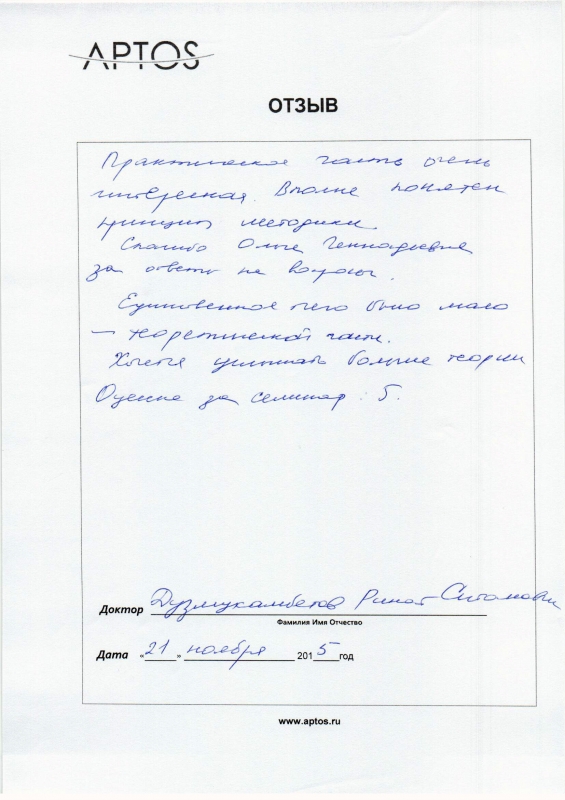 APTOS
ОТЗЫВ
Практическая часть очень
интересная. Вполне понятен
принцип методики.
Спасибо Ольге Геннадьевне
за ответы на вопросы.
Единственное чего было мало
— теоретической части.
Хочется услышать больше теории
Оценка за семинар : 5.
Доктор Дузмукамбетов Ринат
Фамилия Имя Отчество
Дата «21» ноября 2015 год
www.aptos.ru